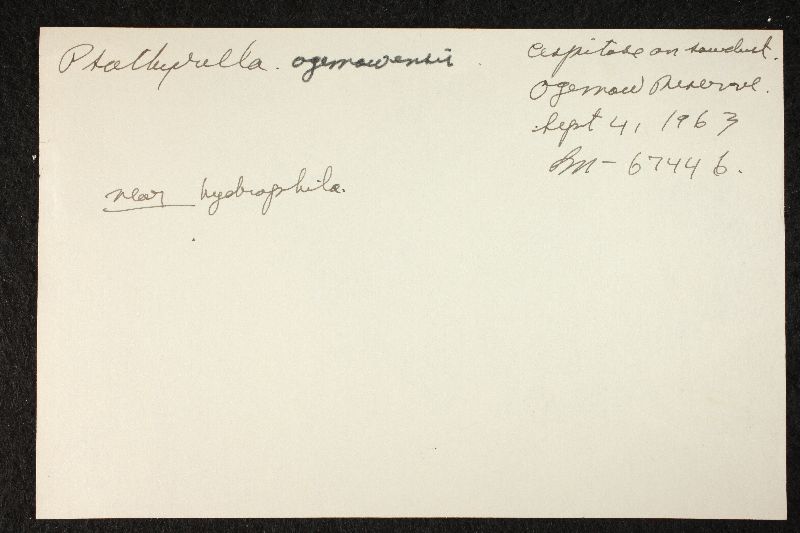 Psathyrella. ogemawensis.
Cespitose on sawdust.
Ogemaw Reserve.
Sept 4, 1963
Sm- 67446.
near hydrophila.